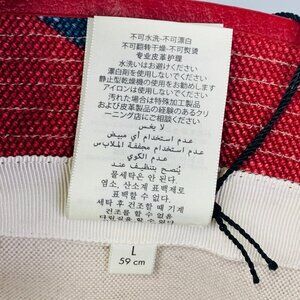 不可水洗-不可漂白
不可翻转干燥-不可熨烫
专业皮革护理
水洗いはお避けください
漂白剤を使用しないでください
静止型乾燥機の使用をお勧めします
アイロンは使用しないでください
汚れた場合は特殊加工製品
および皮革製品の経験のあるクリ
ーニング店にご相談ください
لا يغسل
عدم استخدام أي مبيض
عدم استخدام مجففة الملابس
عدم الكوي
يُنصح بتنظيف عند
물세탁은 안 된다.
염소, 산소계 표백제로
표백할 수 없다.
세탁 후 건조할 때 기계
건조를 할 수 없다
다림질을 할 수 없다
L
59 cm